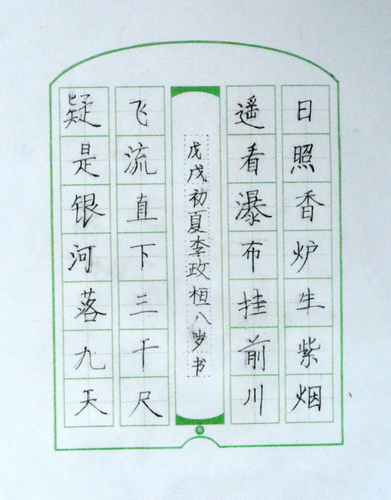 日照香炉生紫烟
遥看瀑布挂前川
戊戌初夏李政桓八岁书
飞流直下三千尺
疑是银河落九天